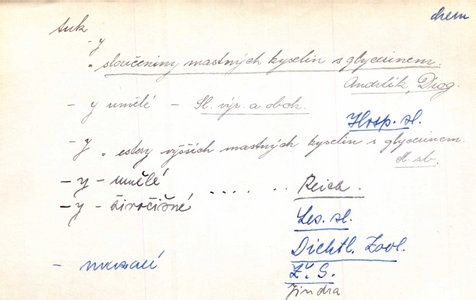 chem
tuk
- y
„ sloučeniny mastných kyselin s glycerinem.
Andrlík, Drog.
- y umělé - Sl. výr. a obch.
Hosp. sl.
- y
„ estery vyšších mastných kyselin s glycerinem.
N. sb.
- y - umělé ..... Reich.
- y - živočišné
Les. sl.
Dichtl. Zool.
Z. S.
Jindra